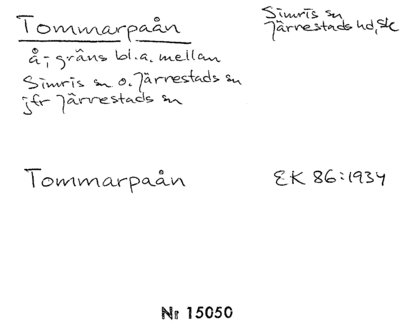 Tommarpaån
Simris sn
Järrestads hd, Sk
å; gräns bl.a. mellan
Simris sn o. Järrestads sn
jfr Järrestads sn
Tommarpaån EK 86:1934
Nr 15050